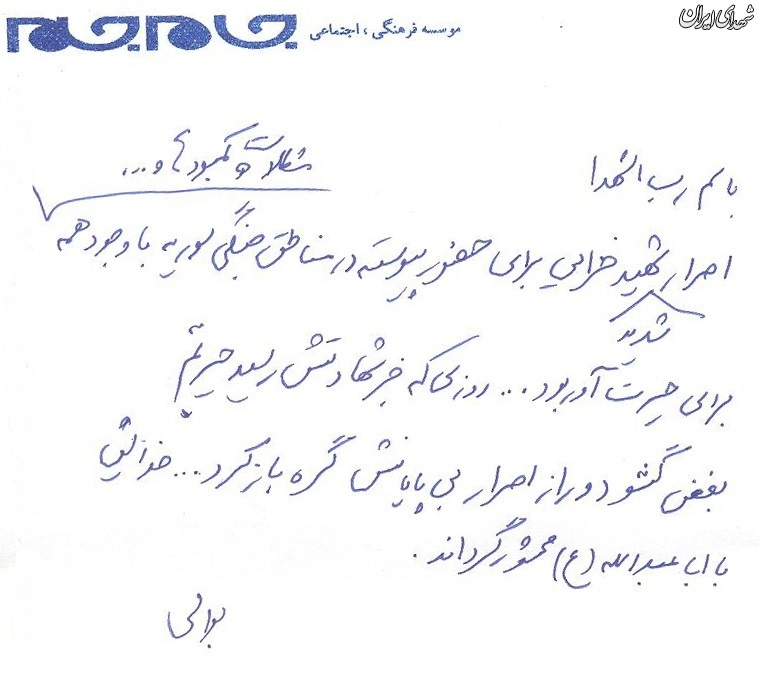 شهدای ایران
موسسه فرهنگی، اجتماعی
جام جم
باسم رب الشهدا
مشکلات و کمبودها و...
اصرار شهید خزایی برای حضور پیوسته در مناطق جنگی سوریه با وجود همه
شدید
برای حیرت آور بود... روزی که خبر شهادتش رسید حیرتم
بغض گشود و راز اصرار بی پایانش گره باز کرد... خدایش
با اباعبدالله (ع) محشور گرداند.